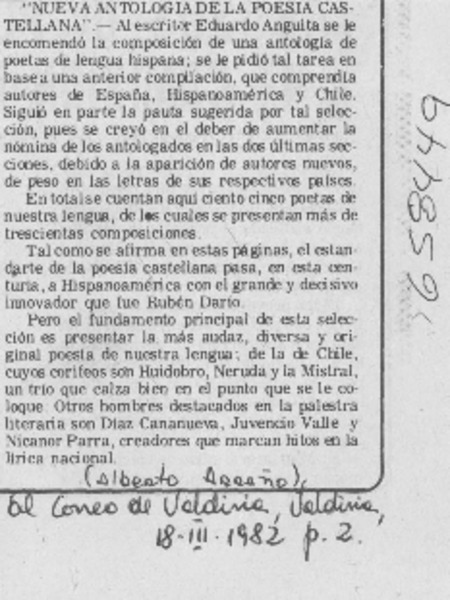 "NUEVA ANTOLOGIA DE LA POESIA CAS-
TELLANA".— Al escritor Eduardo Anguita se le
encomendó la composición de una antología de
poetas de lengua hispana; se le pidió tal tarea en
base a una anterior compilación, que comprendía
autores de España, Hispanoamérica y Chile.
Siguió en parte la pauta sugerida por tal selec-
ción, pues se creyó en el deber de aumentar la
nómina de los antologados en las dos últimas sec-
ciones, debido a la aparición de autores nuevos,
de peso en las letras de sus respectivos países.
En total se cuentan aquí ciento cinco poetas de
nuestra lengua, de los cuales se presentan más de
trescientas composiciones.
Tal como se afirma en estas páginas, el estan-
darte de la poesía castellana pasa, en esta cen-
turia, a Hispanoamérica con el grande y decisivo
innovador que fue Rubén Darío.
Pero el fundamento principal de esta selec-
ción es presentar la más audaz, diversa y ori-
ginal poesía de nuestra lengua; de la de Chile,
cuyos corifeos son Huidobro, Neruda y la Mistral,
un trío que calza bien en el punto que se le co-
loque. Otros hombres destacados en la palestra
literaria son Díaz Cananueva, Juvencio Valle y
Nicanor Parra, creadores que marcan hitos en la
lírica nacional.
(Alberto Arraño),
El Correo de Valdivia, Valdivia,
18-III-1982 p. 2.
658449